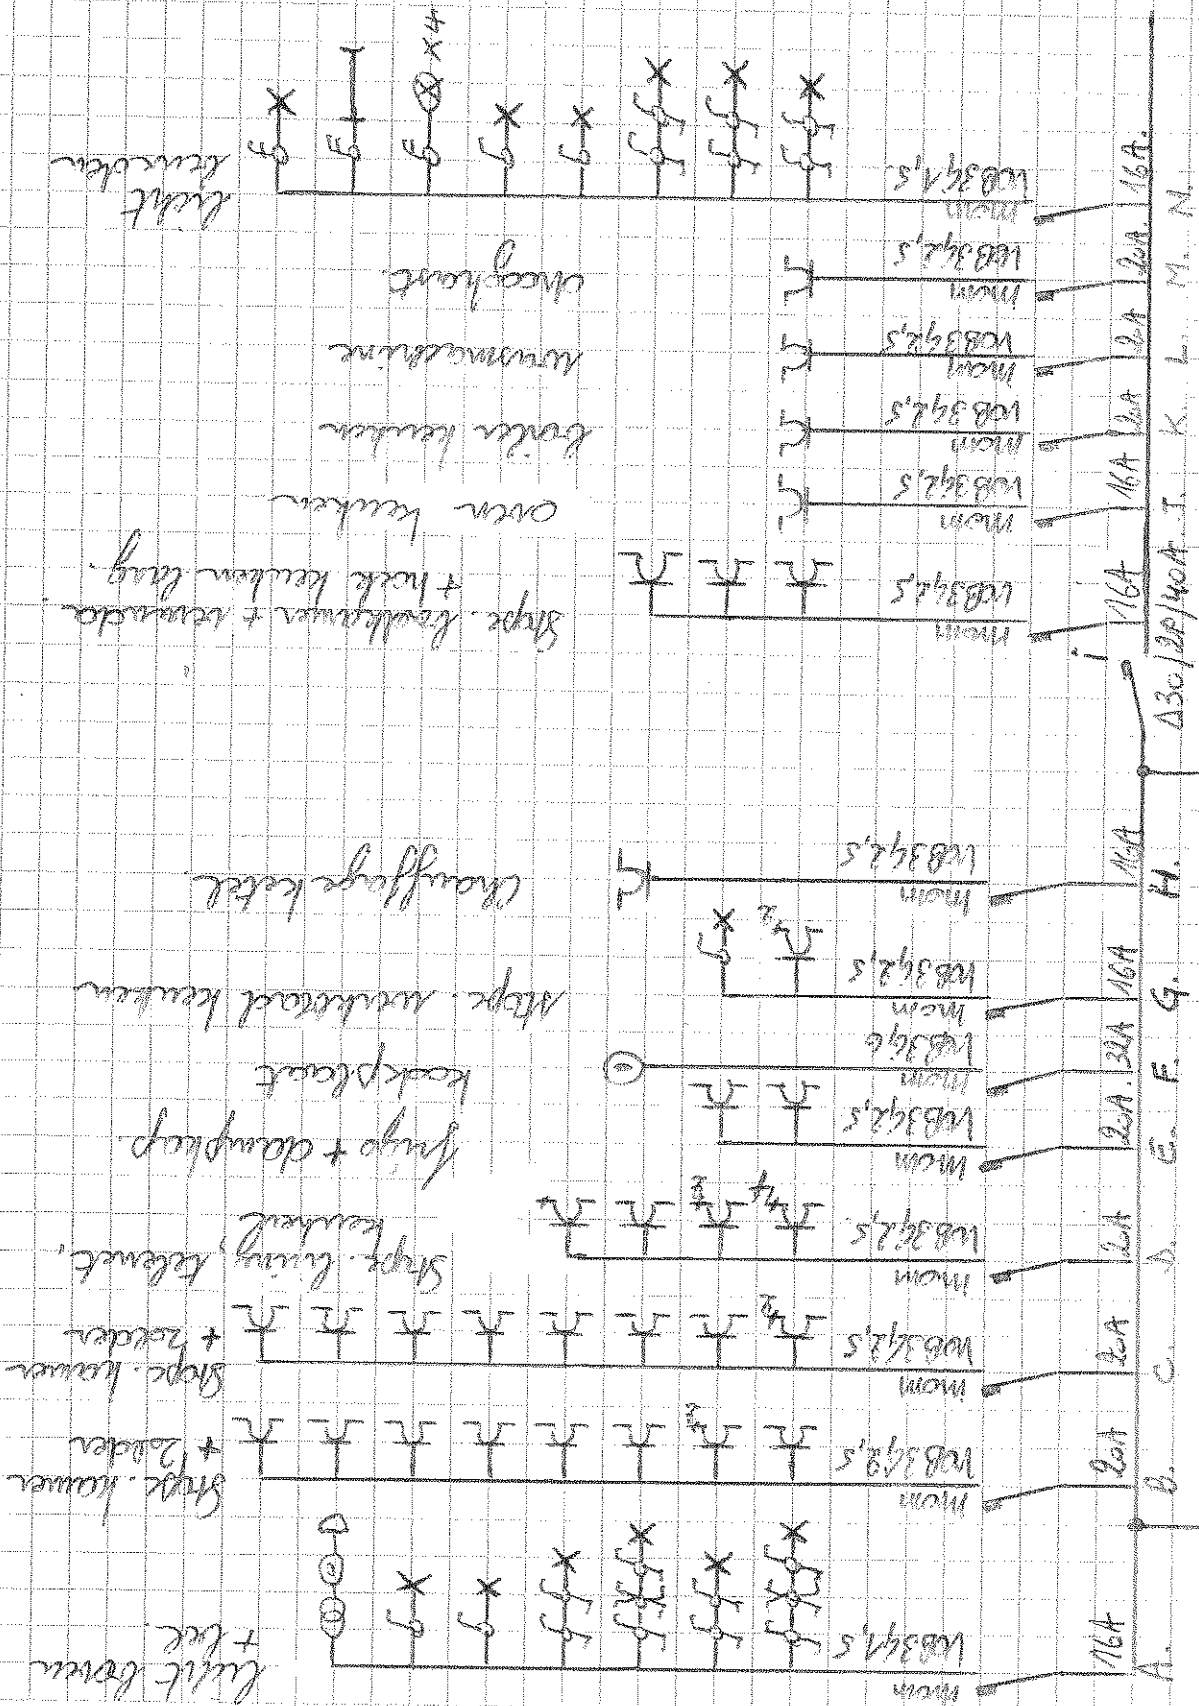 A.
16A
mom
VOB 3G1,5
licht boven
+ bel.
B.
20A
mom
VOB 3G2,5
2
stopc. kamer
+ zolder
C.
20A
mom
VOB 3G2,5
2
stopc. kamer
+ zolder
D.
20A
mom
VOB 3G2,5
stopc. living, telenet,
keuken
E.
20A.
mom
VOB 3G2,5
frigo + dampkap.
F.
32A
mom
VOB 3G6
kookplaat
G.
16A
mom
VOB 3G2,5
2
stopc. werkblad keuken
H.
16A
mom
VOB 3G2,5
Chauffage ketel.
Δ30/2P/40A
16A
mom
VOB 3G2,5
stopc. badkamer + veranda
+ hoek keuken laag.
I.
16A
mom
VOB 3G2,5
oven keuken
K.
20A
mom
VOB 3G2,5
boiler keuken
L.
20A
mom
VOB 3G2,5
wasmachine
M.
20A.
mom
VOB 3G2,5
droogkast.
N.
16A.
mom
VOB 3G1,5
x4
licht
beneden